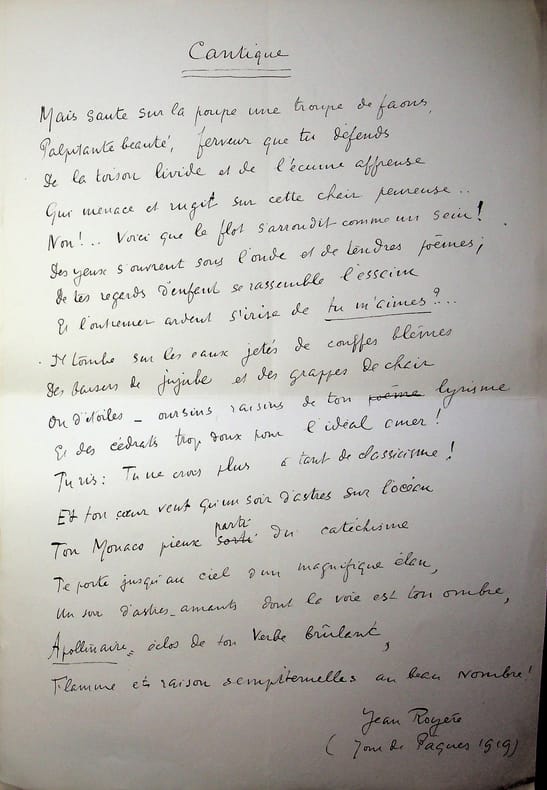 Cantique
Mais saute sur la poupe une troupe de faons,
Palpitante beauté, ferveur que tu défends
De la toison livide et de l'écume affreuse
Qui menace et rugit sur cette chair peureuse..
Non!.. Voici que le flot s'arrondit comme un sein!
Des yeux s'ouvrent sous l'onde et de tendres poèmes;
De tes regards d'enfant se rassemble l'essaim
Et l'outremer ardent s'irise de tu m'aimes?...
Il tombe sur les eaux jetés de couffes blêmes
Des baisers de jujube et des grappes de chair
Ou d'étoiles - oursins raisins de ton poème lyrisme
Et des cédrats trop doux pour l'idéal amer!
Tu ris: Tu ne crois plus à tant de classicisme!
Et ton cœur veut qu'un soir d'astres sur l'océan
parti
Ton Monaco pieux sorti du catéchisme
Te porte jusqu'au ciel d'un magnifique élan,
Un soir d'astres-amants dont la voie est ton ombre,
Apollinaire, éclos de ton Verbe brûlant,
Flamme et raison sempiternelles au beau Nombre!
Jean Royère
(Jour de Pâques 1919)